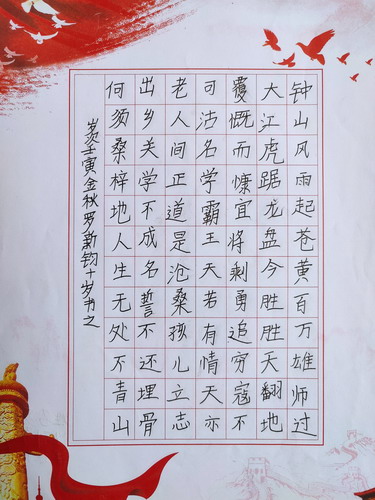 钟山风雨起苍黄百万雄师过
大江虎踞龙盘今胜胜天翻地
覆慨而慷宜将剩勇追穷寇不
可沽名学霸王天若有情天亦
老人间正道是沧桑孩儿立志
出乡关学不成名誓不还埋骨
何须桑梓地人生无处不青山
岁次壬寅金秋罗新钧十岁书之